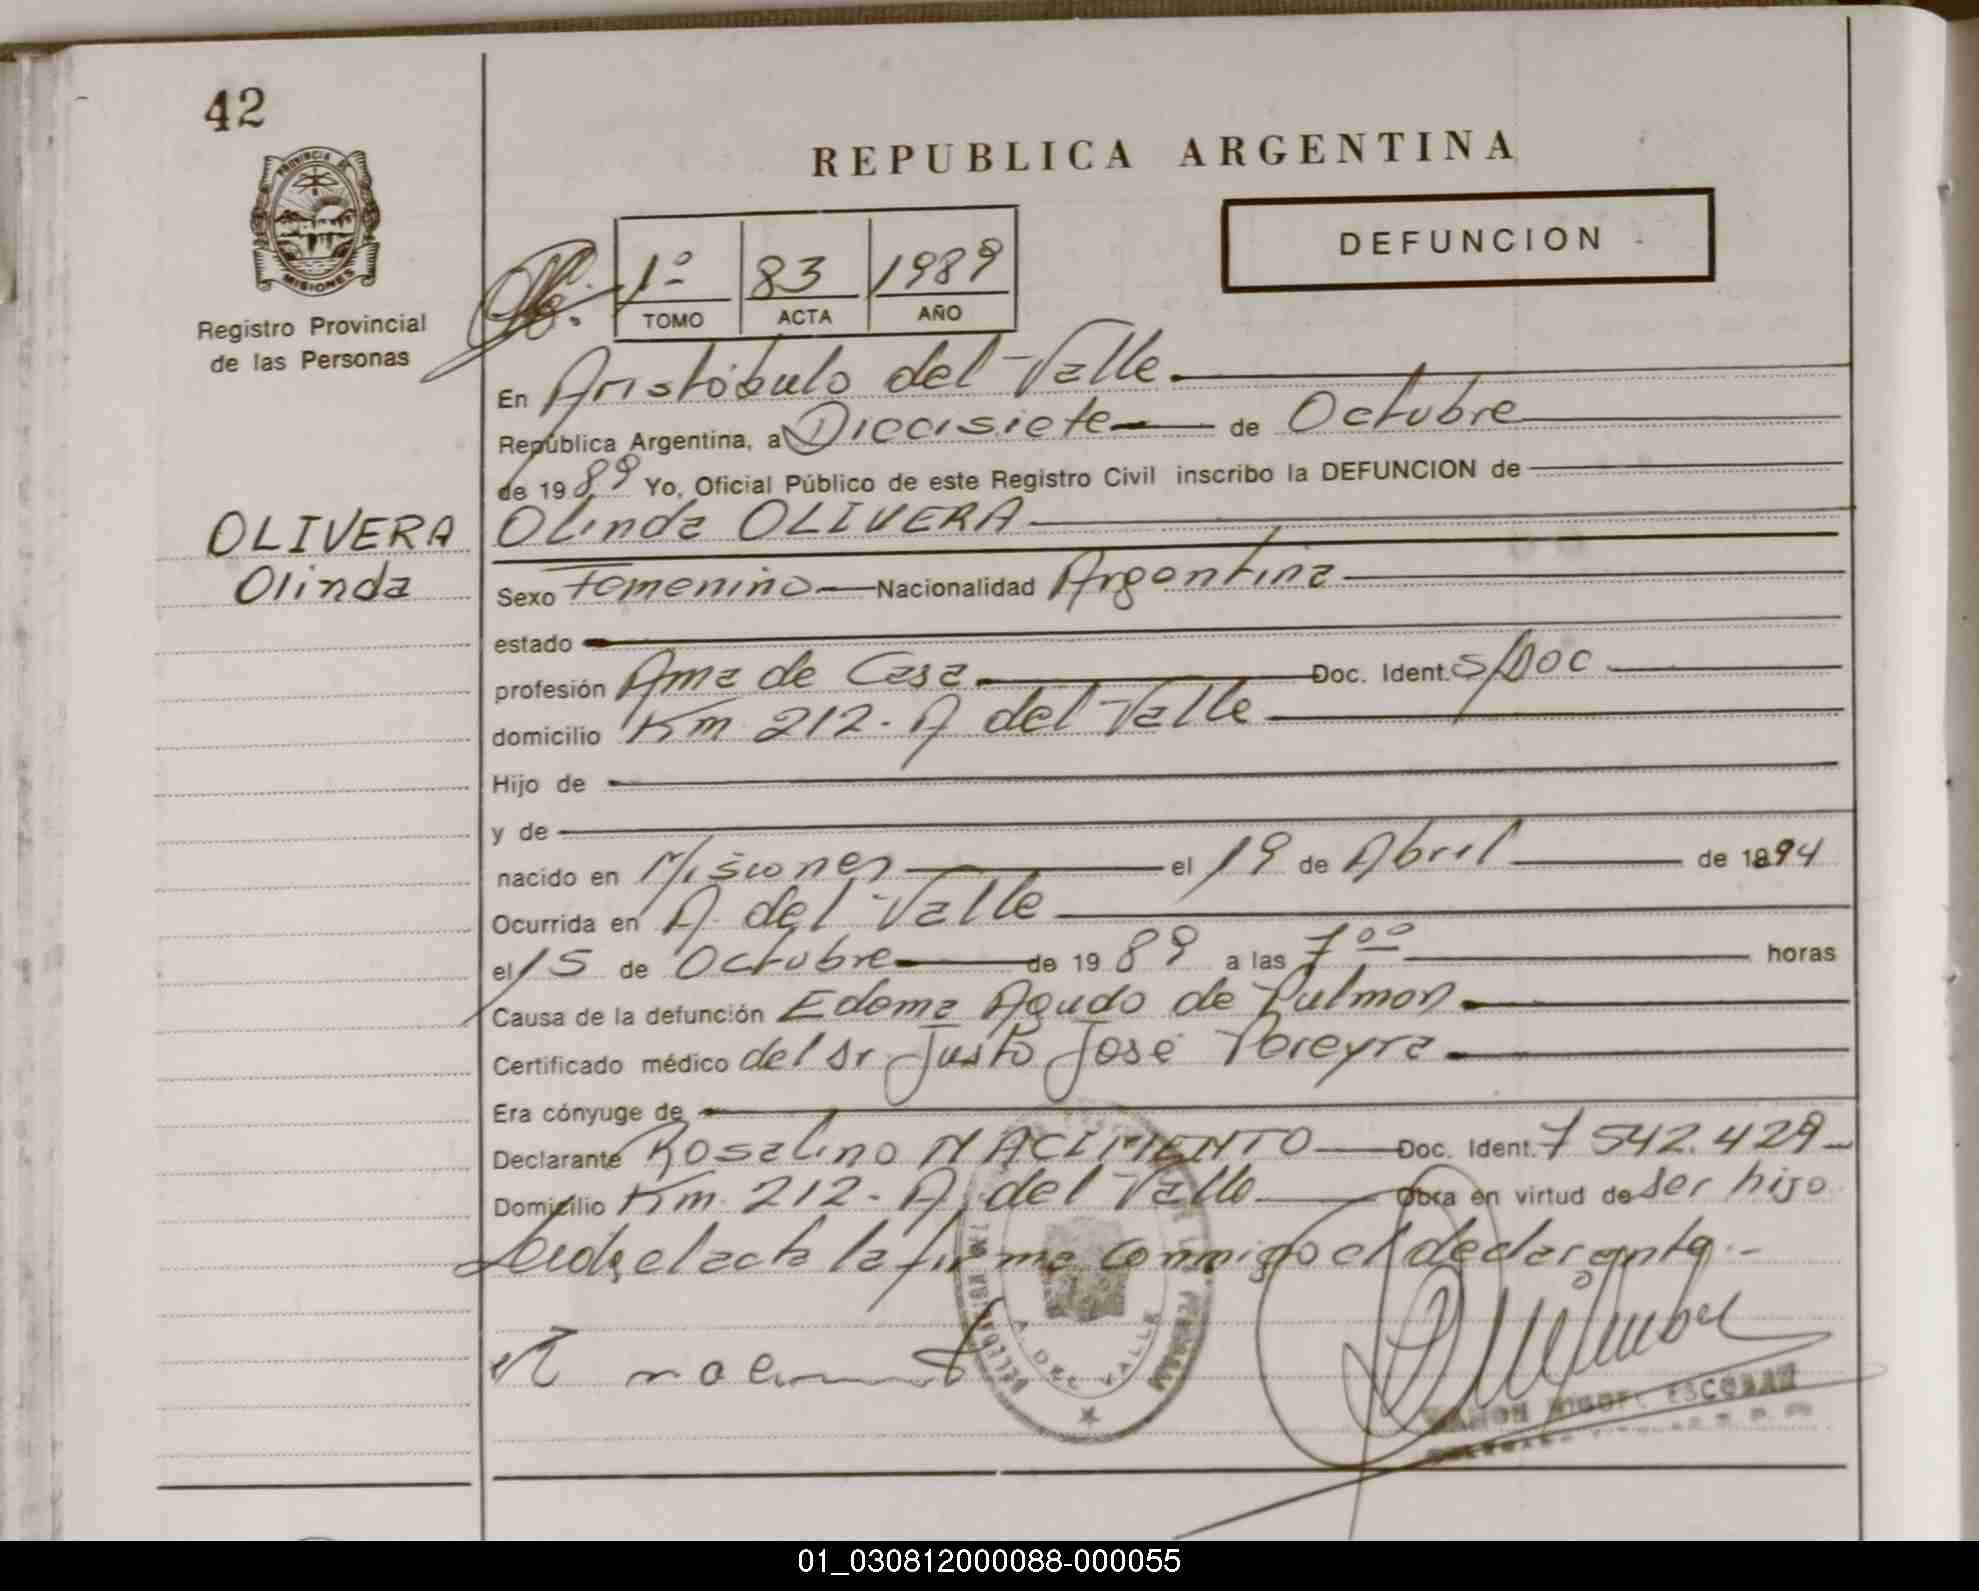 42
PROVINCIA DE
MISIONES
Registro Provincial
de las Personas
REPUBLICA ARGENTINA
DEFUNCION
1º 83 1989
TOMO ACTA AÑO
En Aristóbulo del Valle
República Argentina, a Diecisiete de Octubre
de 1989 Yo, Oficial Público de este Registro Civil inscribo la DEFUNCION de
OLIVERA
Olinda
Olinda OLIVERA
Sexo Femenino Nacionalidad Argentina
estado
profesión Ama de Casa Doc. Ident. S/Doc
domicilio Km 212. A del Valle
Hijo de
y de
nacido en Misiones el 19 de Abril de 1894
Ocurrida en A. del Valle
el 15 de Octubre de 1989 a las 7 00 horas
Causa de la defunción Edema Agudo de Pulmon
Certificado médico del Dr Justo José Pereyra
Era cónyuge de
Declarante Rosalino NACIMIENTO Doc. Ident. 7 542.429
Domicilio Km. 212. A. del Valle Obra en virtud de ser hijo
Leida el acta la firma conmigo el declarante.-
A. DEL VALLE
RAMON MIGUEL ESCOBAR
01_030812000088-000055